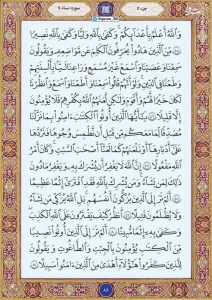 جزء ۵
سوره نساء ۴
وَاللَّهُ أَعْلَمُ بِأَعْدَائِكُمْ وَكَفَىٰ بِاللَّهِ وَلِيًّا وَكَفَىٰ بِاللَّهِ نَصِيرًا
﴿٤٥﴾ مِنَ الَّذِينَ هَادُوا يُحَرِّفُونَ الْكَلِمَ عَنْ مَوَاضِعِهِ وَيَقُولُونَ
سَمِعْنَا وَعَصَيْنَا وَاسْمَعْ غَيْرَ مُسْمَعٍ وَرَاعِنَا لَيًّا بِأَلْسِنَتِهِمْ
وَطَعْنًا فِي الدِّينِ وَلَوْ أَنَّهُمْ قَالُوا سَمِعْنَا وَأَطَعْنَا وَاسْمَعْ وَانْظُرْنَا
لَكَانَ خَيْرًا لَهُمْ وَأَقْوَمَ وَلَٰكِنْ لَعَنَهُمُ اللَّهُ بِكُفْرِهِمْ فَلَا يُؤْمِنُونَ
إِلَّا قَلِيلًا ﴿٤٦﴾ يَا أَيُّهَا الَّذِينَ أُوتُوا الْكِتَابَ آمِنُوا بِمَا نَزَّلْنَا
مُصَدِّقًا لِمَا مَعَكُمْ مِنْ قَبْلِ أَنْ نَطْمِسَ وُجُوهًا فَنَرُدَّهَا
عَلَىٰ أَدْبَارِهَا أَوْ نَلْعَنَهُمْ كَمَا لَعَنَّا أَصْحَابَ السَّبْتِ وَكَانَ أَمْرُ
اللَّهِ مَفْعُولًا ﴿٤٧﴾ إِنَّ اللَّهَ لَا يَغْفِرُ أَنْ يُشْرَكَ بِهِ وَيَغْفِرُ مَا دُونَ
ذَٰلِكَ لِمَنْ يَشَاءُ وَمَنْ يُشْرِكْ بِاللَّهِ فَقَدِ افْتَرَىٰ إِثْمًا عَظِيمًا
﴿٤٨﴾ أَلَمْ تَرَ إِلَى الَّذِينَ يُزَكُّونَ أَنْفُسَهُمْ بَلِ اللَّهُ يُزَكِّي مَنْ يَشَاءُ
وَلَا يُظْلَمُونَ فَتِيلًا ﴿٤٩﴾ انْظُرْ كَيْفَ يَفْتَرُونَ عَلَى اللَّهِ الْكَذِبَ
وَكَفَىٰ بِهِ إِثْمًا مُبِينًا ﴿٥٠﴾ أَلَمْ تَرَ إِلَى الَّذِينَ أُوتُوا نَصِيبًا
مِنَ الْكِتَابِ يُؤْمِنُونَ بِالْجِبْتِ وَالطَّاغُوتِ وَيَقُولُونَ
لِلَّذِينَ كَفَرُوا هَٰؤُلَاءِ أَهْدَىٰ مِنَ الَّذِينَ آمَنُوا سَبِيلًا ﴿٥١﴾
٨٦